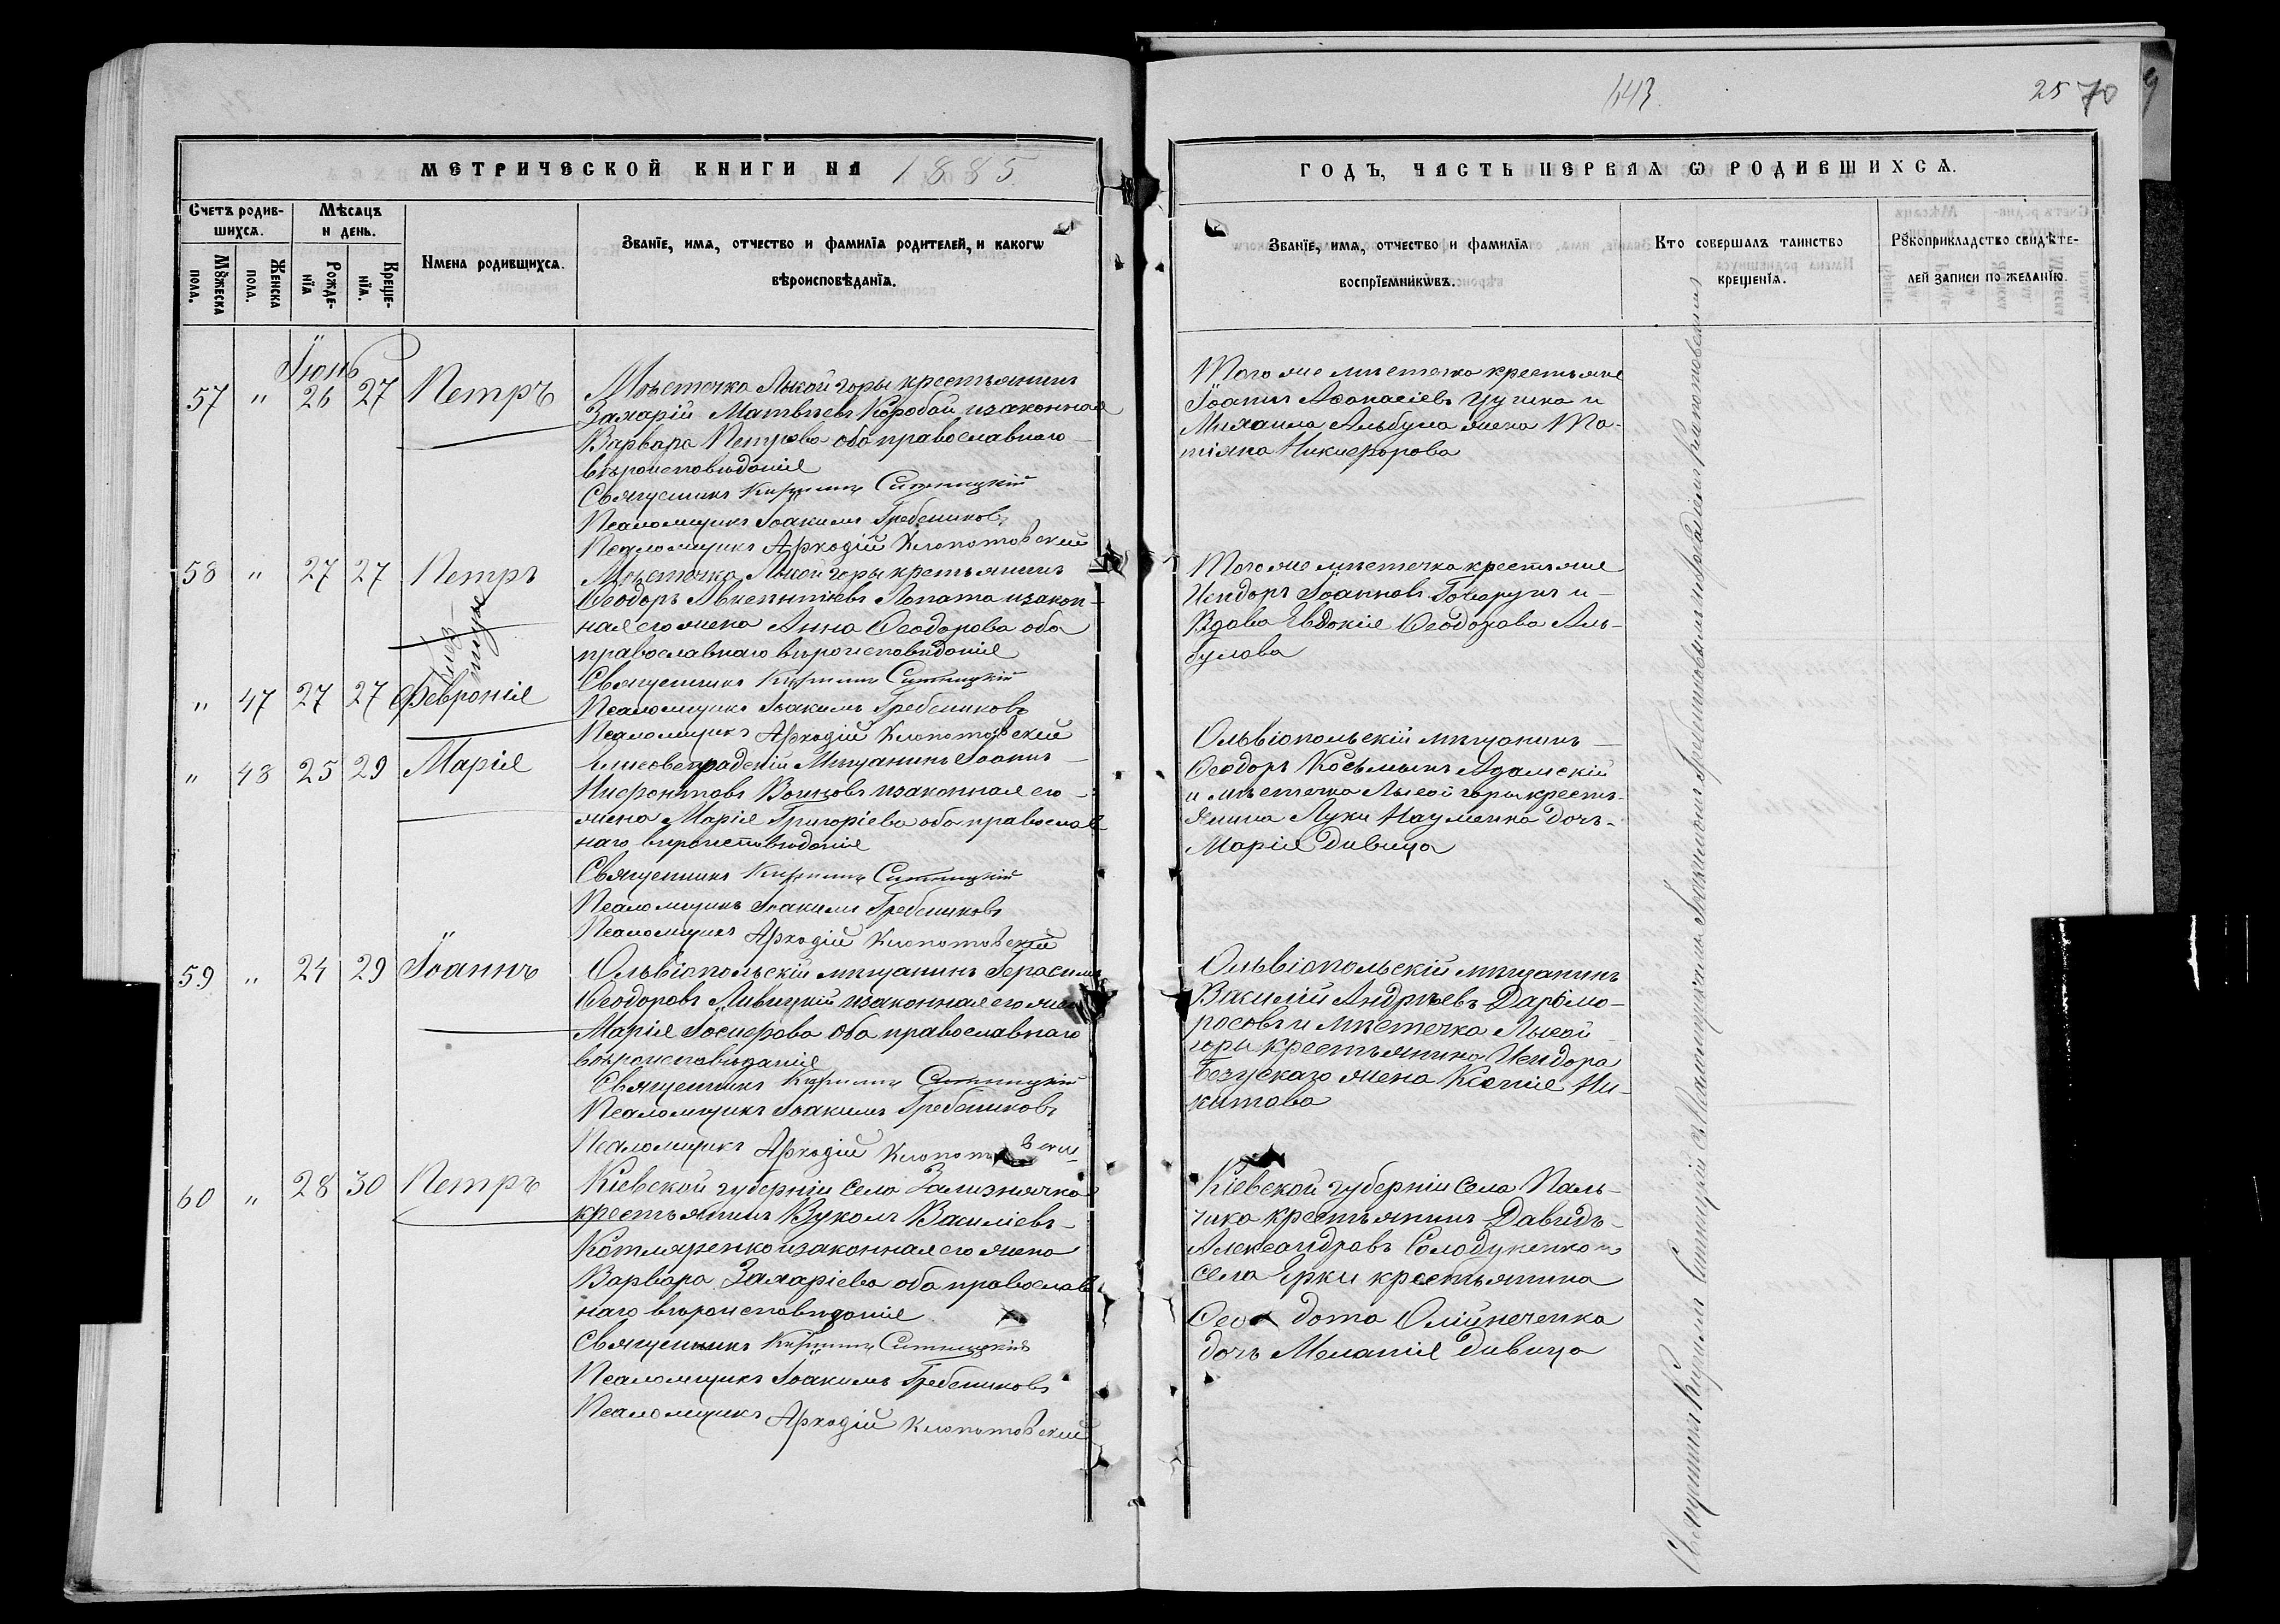 443.
25 70
МЕТРИЧЕСКОЙ КНИГИ НА 1885
ГОДЪ, ЧАСТЬ ПЕРВАЯ Ѡ РОДИВШИХСЯ.
Счетъ родив-
шихся.
Мѣсяцъ
и день.
Мꙋжеска
пола.
Женска
пола.
Рожде-
нїя
Креще-
нїя.
Имена родившихся.
Званїе, имя, отчество и фамилїя родителей, и какогѡ
вѣроисповѣданїя.
Званїе, имя, отчество и фамилїя
воспрїемникѡвъ.
Кто совершалъ таинство
крещенїя.
Рꙋкоприкладство свидѣте-
лей записи по желанїю.
Іюнь
57 " 26 27 Петръ
Мѣстечка Лысой горы крестьянинъ
Захарій Матвѣевъ Коробай и законная
Варвара Петрова оба православнаго
вѣроисповѣданія
Священникъ Кириллъ Ситницкій
Псаломщикъ Іоакимъ Гребениковъ
Псаломщикъ Аркадій Клопотовскій
Того же мѣстечка крестьяне
Іоаннъ Аѳанасіевъ Цуцика и
Михаила Альбула жена Та-
тіяна Никифорова
58 " 27 27 Петръ
Мѣстечка Лысой горы крестьянинъ
Ѳеодоръ Авксентіевъ Лопата и закон-
ная его жена Анна Ѳеодорова оба
православнаго вѣроисповѣданія
Священникъ Кириллъ Ситницкій
Псаломщикъ Іоакимъ Гребениковъ
Псаломщикъ Аркадій Клопотовскій
Того же мѣстечка крестьяне
Исидоръ Іоанновъ и
Вдова Евдокія Ѳеодорова Аль-
булова
" 47 27 27 Февронія
" 48 25 29 Марія
Елисоветградскій Мѣщанинъ Іоаннъ
Ниѳонтовъ Волковъ и законная его
жена Марія Григоріева оба православ-
наго вѣроисповѣданія
Священникъ Кириллъ Ситницкій
Псаломщикъ Іоакимъ Гребениковъ
Псаломщикъ Аркадій Клопотовскій
Ольвіопольскій мѣщанинъ
Ѳеодоръ Косьминъ Адамскій
и мѣстечка Лысой горы кресть-
янина Луки Науменка дочь
Марія дѣвица
59 " 24 29 Іоаннъ
Ольвіопольскій мѣщанинъ Герасимъ
Ѳеодоровъ Ливицкій и законная его жена
Марія Іосифова оба православнаго
вѣроисповѣданія
Священникъ Кириллъ Ситницкій
Псаломщикъ Іоакимъ Гребениковъ
Псаломщикъ Аркадій
Ольвіопольскій мѣщанинъ
Василій Андрѣевъ Дарімо-
росовъ и мѣстечка Лысой
горы крестьянина Исидора
Безускаго жена Ксенія Ни-
китова
60 " 28 30 Петръ
Кіевской губерніи села Зализнячка
крестьянинъ Вуколъ Василіевъ
Котляренко и законная его жена
Варвара Захаріева оба православ-
наго вѣроисповѣданія
Священникъ Кириллъ Ситницкій
Псаломщикъ Іоакимъ Гребениковъ
Псаломщикъ Аркадій Клопотовскій
Кіевской губерніи села Паль-
чика крестьянинъ Давидъ
Александровъ Солодуненко и
села Ерки крестьянина
Ѳео дота Олійнеченка
дочь Меланія дѣвица
Священникъ Кириллъ Ситницкій съ Псаломщиками Іоакимомъ Гребениковымъ и Аркадіемъ Клопотовскимъ